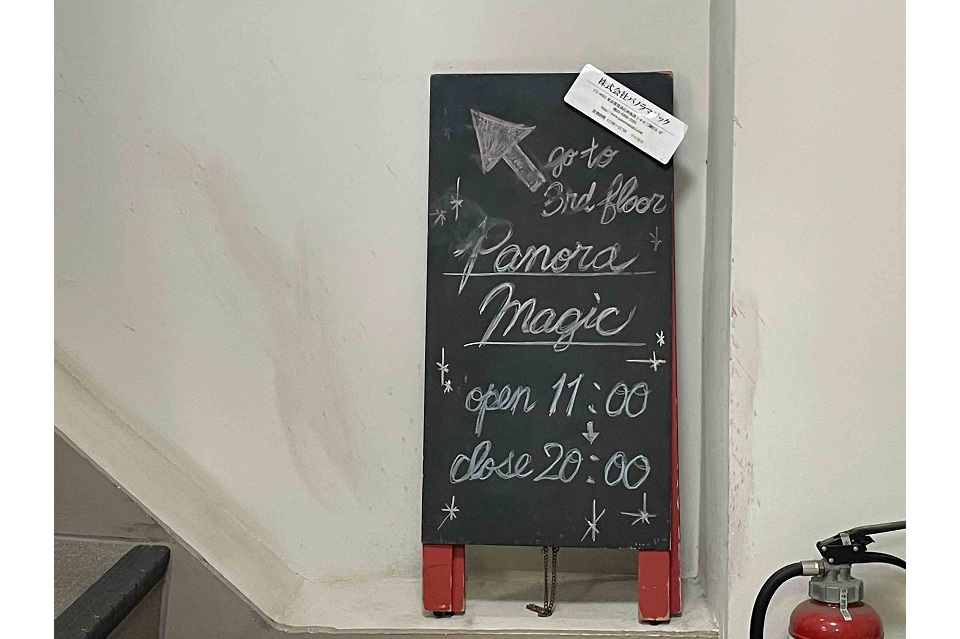 株式会社パノラマジック
go to
3rd floor
Panora
Magic
open 11:00
close 20:00